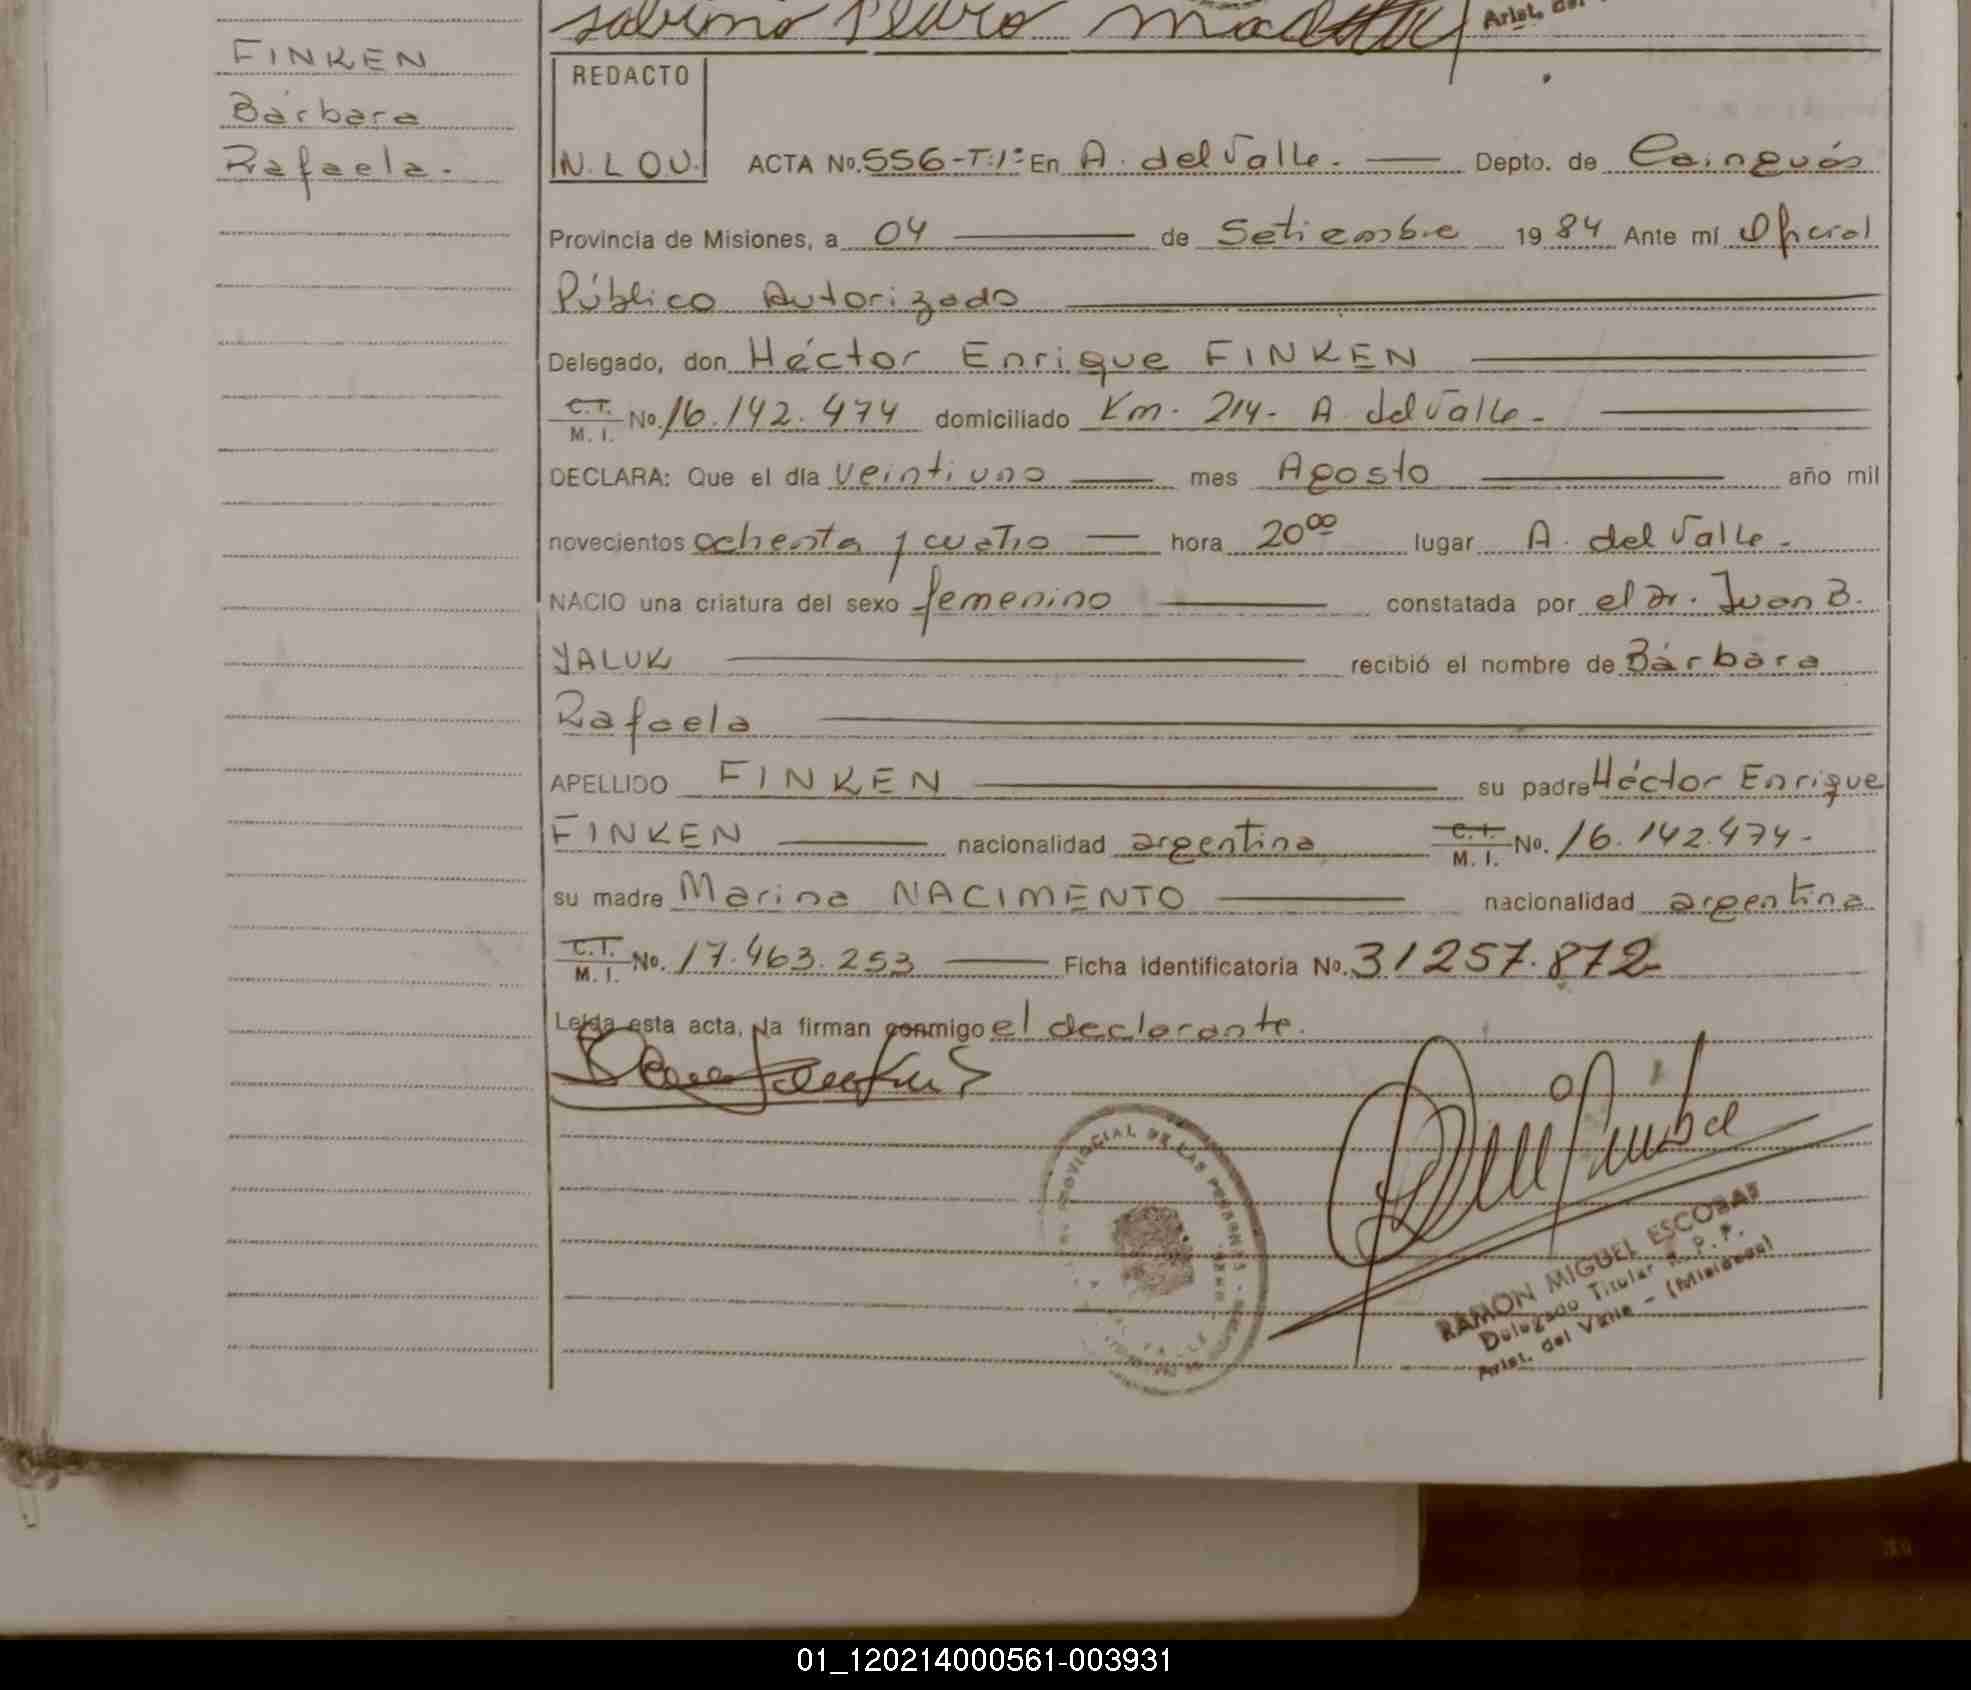 Sabino Pedro
Arist. del
FINKEN
Bárbara
Rafaela.
REDACTO
N. L O U.
ACTA No. 556-T:1º En A. del Valle. Depto. de Cainguás
Provincia de Misiones, a 04 de Setiembre 1984 Ante mí Oficial
Público Autorizado
Delegado, don Héctor Enrique FINKEN
C.I. M. I. No. 16.142.474 domiciliado Km. 214. A. del Valle.
DECLARA: Que el día veintiuno mes Agosto año mil
novecientos ochenta y cuatro hora 20 00 lugar A. del Valle.
NACIO una criatura del sexo femenino constatada por el Dr. Juan B.
YALUK recibió el nombre de Bárbara
Rafaela
APELLIDO FINKEN su padre Héctor Enrique
FINKEN nacionalidad argentina C.I. M. I. No. 16.142.474-
su madre Marina NACIMENTO nacionalidad argentina
C.I. M. I. No. 17.463.253 Ficha identificatoria No. 31257.872
Leída esta acta, la firman conmigo el declarante.
PROVINCIAL DE LAS PERSONAS
RAMON MIGUEL ESCOBAR
Delegado Titular R. P. P.
Arist. del Valle - (Misiones)
01_120214000561-003931